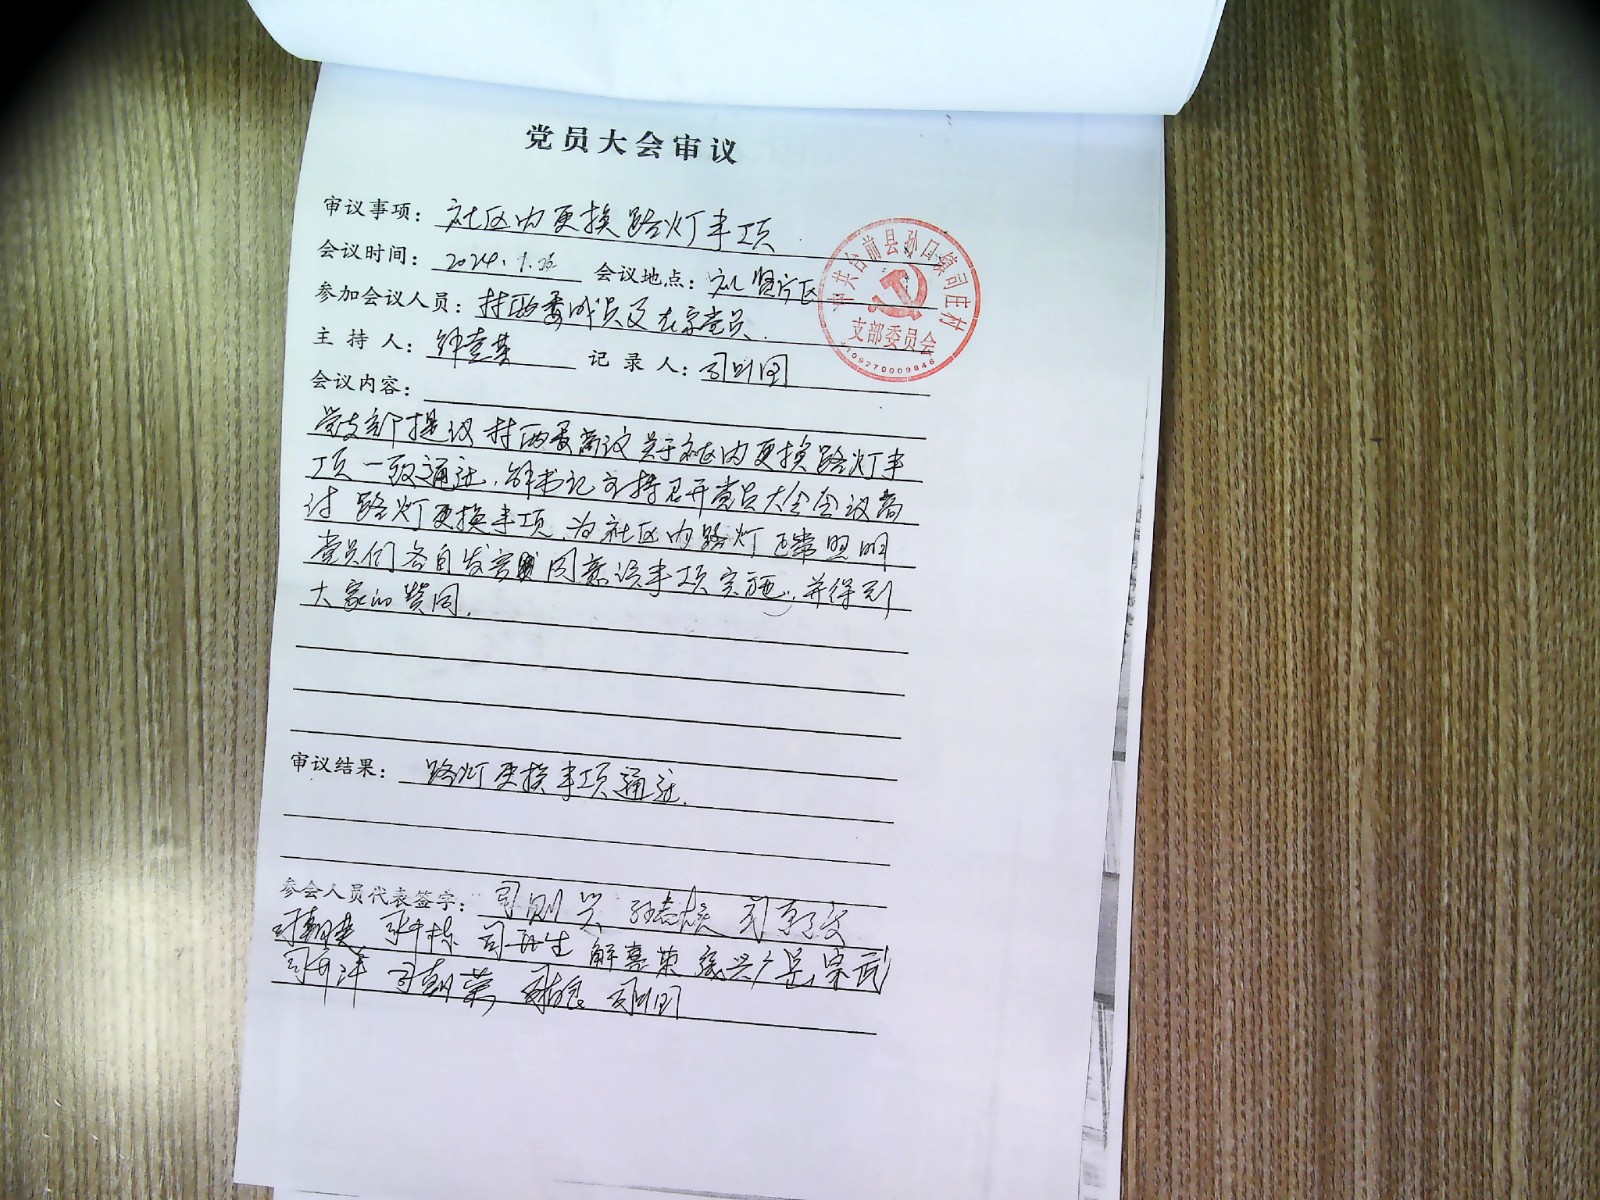 党员大会审议
审议事项：社区内更换路灯事项
会议时间：2024.1.26 会议地点：贤片区
参加会议人员：村两委成员及在家党员.
主持人：解喜荣 记录人：司
会议内容：
党支部提议村两委商议关于社区内更换路灯事
项一致通过.解书记主持召开党员大会会议商
讨路灯更换事项,为社区内路灯正常照明
党员们各自发言同意该事项实施,并得到
大家的赞同.
审议结果：路灯更换事项通过.
参会人员代表签字：司则兴
司再生 解喜荣
中共台前县孙口镇司庄村
支部委员会